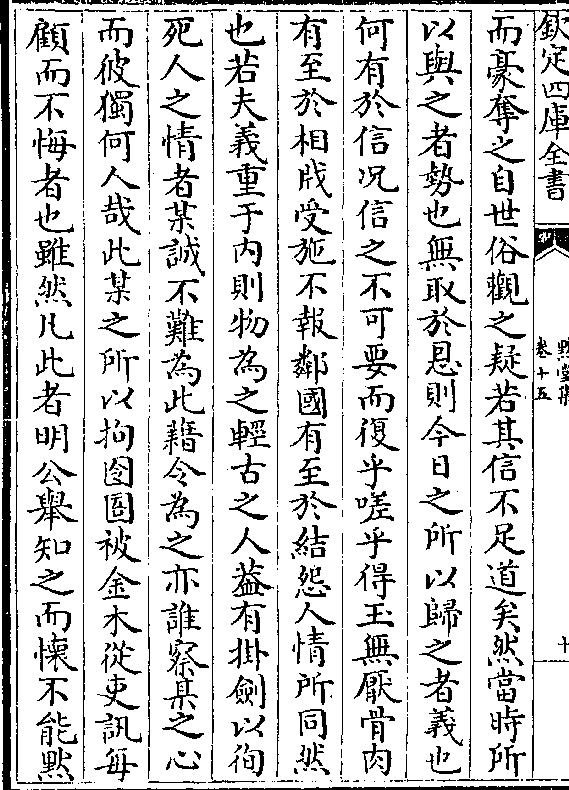 欽定四庫全書
黙堂
卷十五
而豪奪之自世俗觀之疑若其信不足道矣然當時所
以與之者勢也無取於恩則今日之所以歸之者義也
何有於信况信之不可要而復乎嗟乎得玉無厭骨肉
有至於相戕受施不報鄰國有至於結怨人情所同然
也若夫義重于内則物為之輕古之人葢有掛劍以徇
死人之情者某誠不難為此藉令為之亦誰察某之心
而彼獨何人哉此某之所以拘囹圄被金木從吏訊每
顧而不悔者也雖然凡此者明公舉知之而懐不能黙